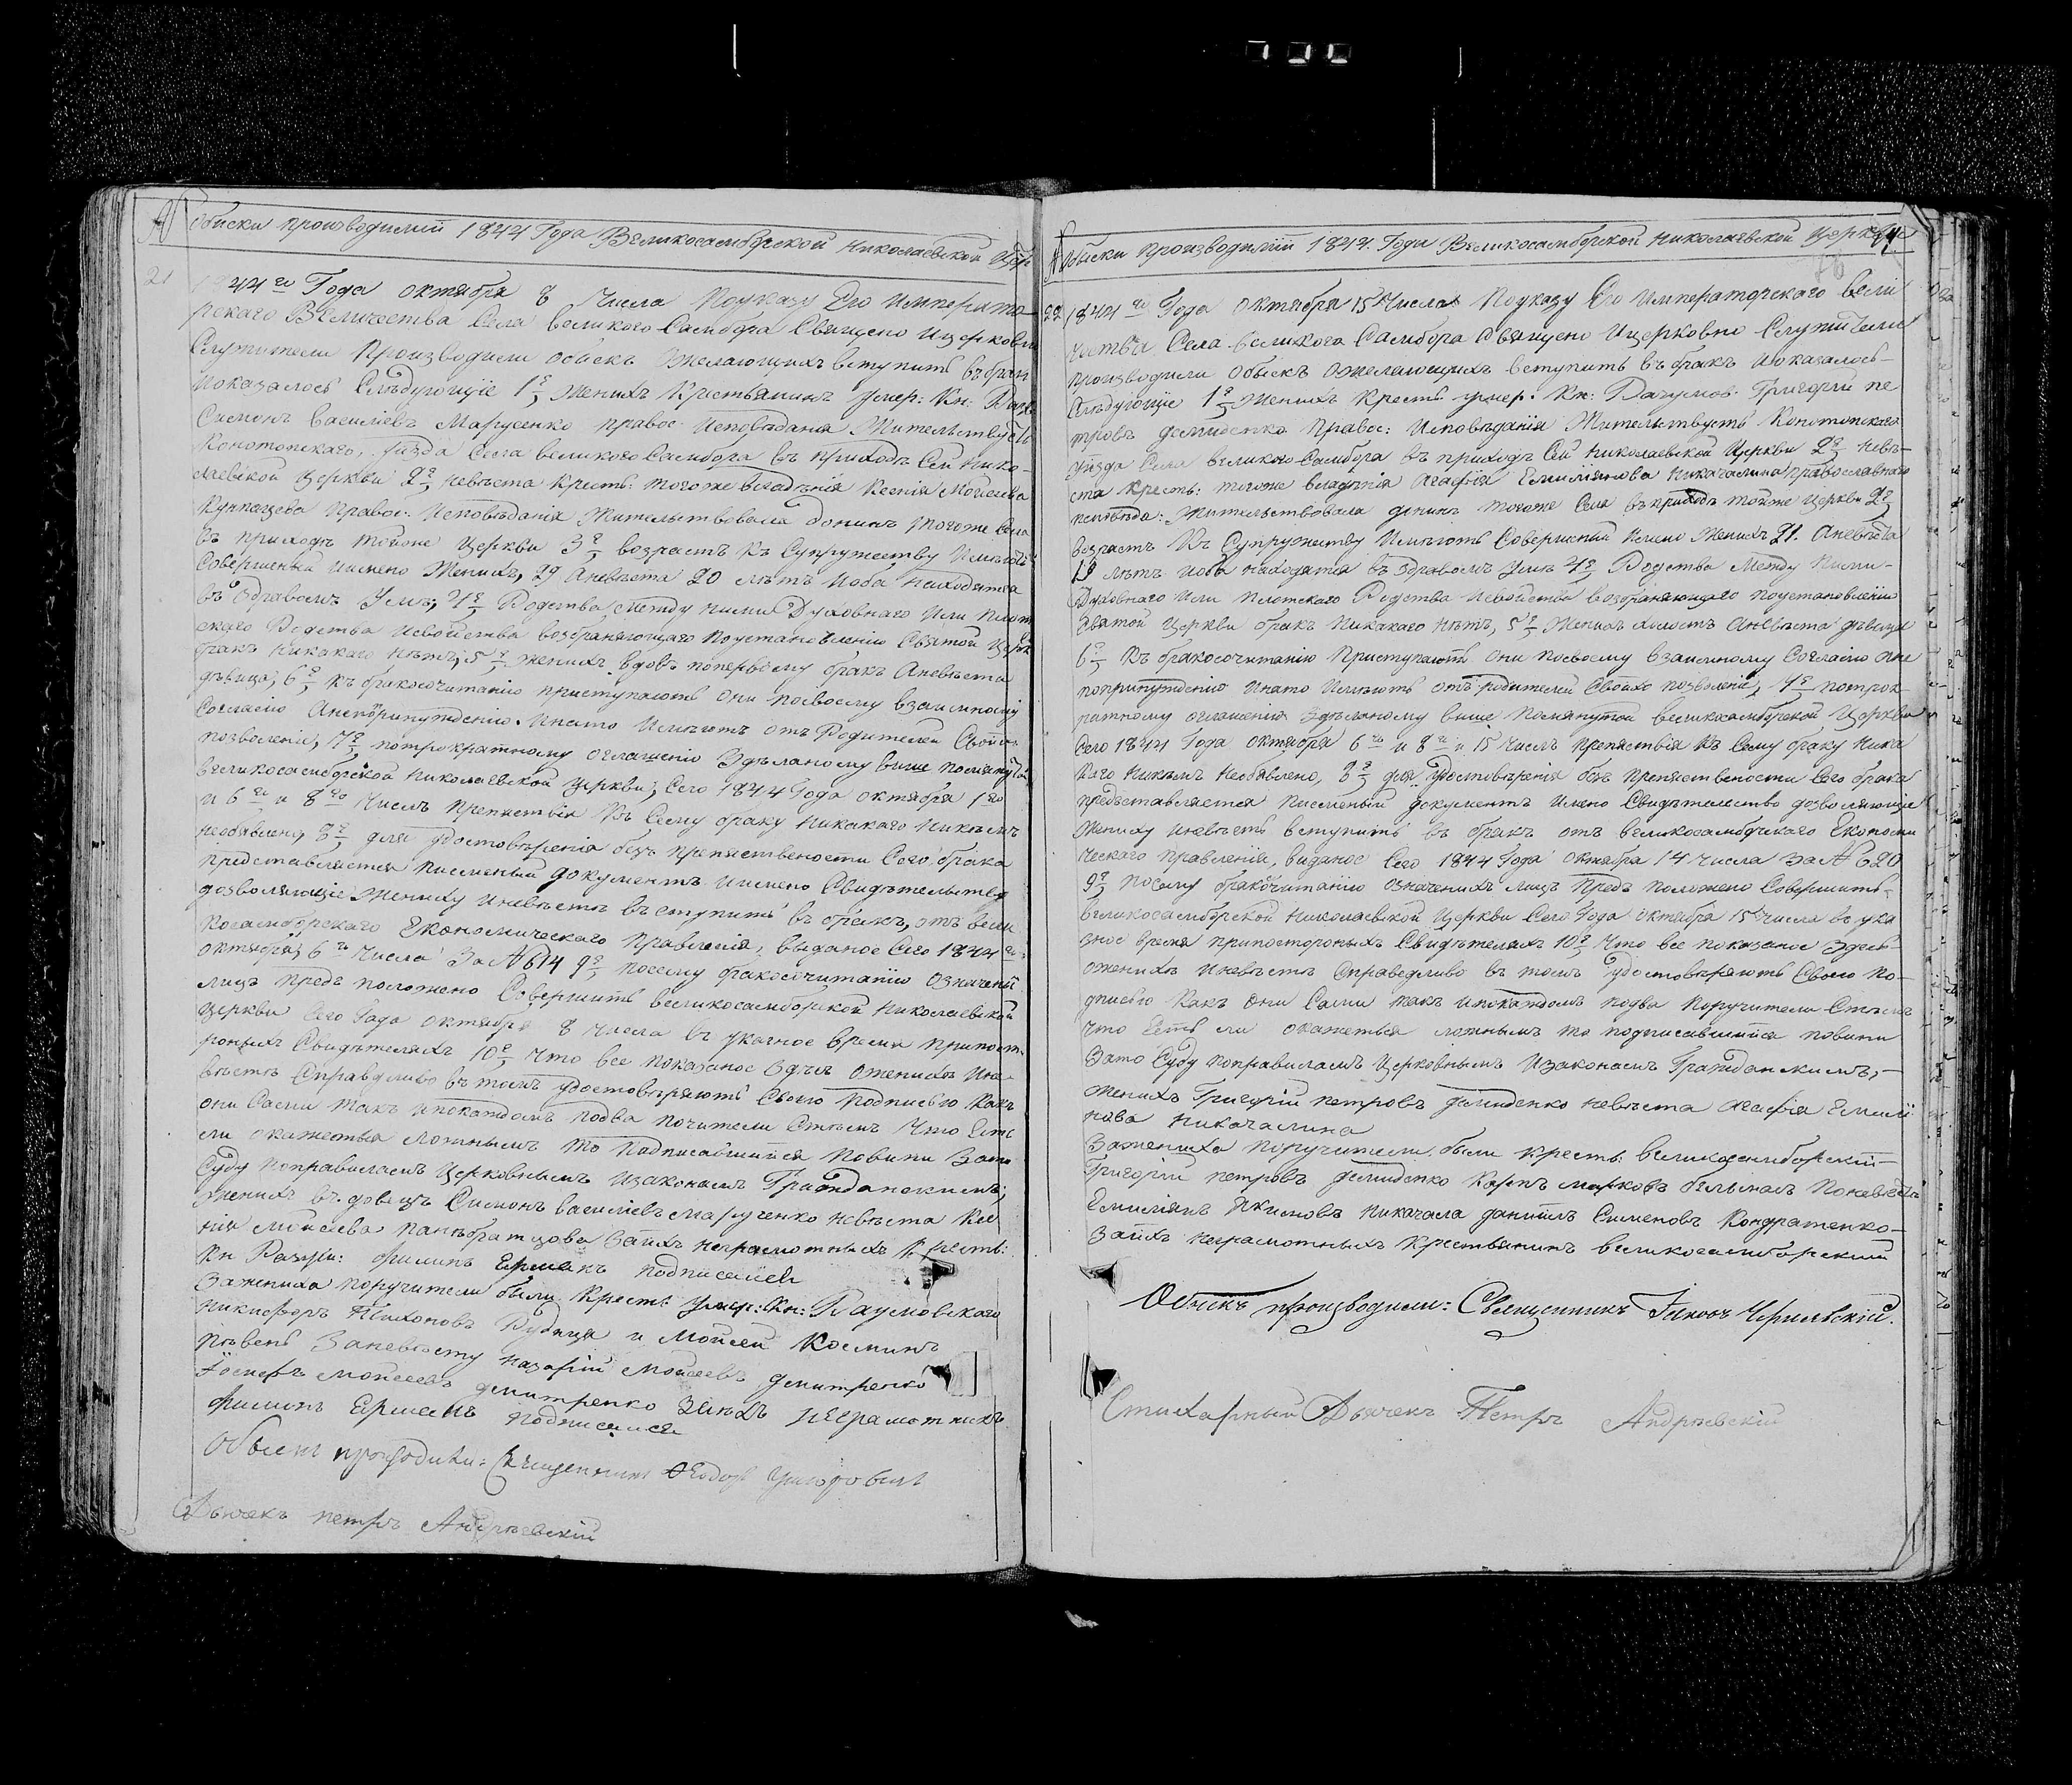 № Обыски производимий 1844 Года Великосамборской Николаевской Цер
21 1844го Года октября 8 Числа Поуказу Его Императо
рского Величества Села великого Самбора Священо Ицерковни
Служители Производили обыскъ Ожелающихъ вступить въ брак
Иоказалось Слѣдующие 1е, Женихъ Крестьянинъ умер: Кн:
Симонъ василиевъ Марусенко православ: Исповѣдания Жительствуетъ
Конотопского, уѣзда Села великого Самбора въ приходѣ Сей Нико-
лаевской Церкви 2е, невѣста Кресть: тогоже владѣнія Ксенія Моисеева
правос: Исповѣданія Жительствовала донинѣ тогоже Села
въ приходѣ тойоже Церкви 3е, возрастъ Къ Супружеству Имѣютъ
Совершеный Иимено Женихъ, 29 Аневѣста 20 лѣтъ Иоба находятся
въ Здравомъ Умѣ; 4е, Родства Между ними Духовного Или Плот
ского Родства Исвойства возбраняющаго поустановленію Святой Церк
бракъ Никакаго Нѣтъ; 5е, женихъ вдовъ попервому бракъ Аневѣста
дѣвица; 6е, къ бракосочитанію приступаютъ Они посвоему взаимному
Согласию Анепопринуждению. Инато Имѣютъ отъ Родителей Своихъ
позволеніе, 7е, потрократному оглашенію Здѣланому више помянутой
великосамборской Николаевской Церкви; Сего 1844 Года октября 1го
и 6го и 8го Числъ Препятствія Къ Сему браку Никакаго Никѣмъ
необявлено, 8е, для удостовѣренія безъ препятствености Сего брака
представляется писменый документъ Иимено Свидѣтельство
дозволяющіе Жениху Иневѣстѣ въступить въ бракъ, отъ вели
косамборского Економического Правленія, выданое Сего 1844 го
октября; 6го Числа За № 614 9е, посему бракосочитанію Означеных
лицъ предъ положено Совершить великосамборской Николаевской
Церкви Сего Года октября 8 числа въ указное время Припост
роныхъ Свидѣтеляхъ 10е, Что все показаное Здѣсь Оженихѣ Ине-
вѣстѣ Справедливо въ томъ удостовѣряютъ Своею подписью Какъ
они Сами такъ ипокаждомъ подва почители Стѣмъ Что Есть
ли окажеться ложнымъ то подписавшиися повини Зато
Суду поправиламъ Церковнымъ Изаконамъ Гражданскимъ;
женихъ въдовецъ Симонъ василиевъ Марусенко невѣста Ксе
нія Моисеева Занихъ неграмотныхъ Кресть:
Кн Разум: Филипъ Ермакъ подписался
Зажениха поручители были Кресть: умер: Кн: Разумовского
Никифоръ Тихоновъ Рудица и Мойсей Косминъ
пѣвень Заневѣсту назарій Мойсеевъ дмитренко
Иосифъ Мойсеевъ дмитренко Занихъ неграмотныхъ
Филипъ Ермакъ подписался
Обыскъ производили: Священникъ Ѳеодоръ
Дьячекъ петръ Андріевскій
№ Обыски производимій 1844. Года Великосамборской Николаевской Церкви
22 1844го Года Октября 15 Числа Поуказу Его Императорского Вели
чества Села Великого Самбора Священо Ицерковно Служители
производили Обыскъ Ожелающихъ вступить въ бракъ Иоказалось-
Слѣдующіе 1е, Женихъ Кресть умер: Кн: Разумов: Григорій пе
тровъ демиденко Правос: Исповѣданія Жительствуетъ Конотопского
уѣзда Села великого Самбора въ приходѣ Сей Николаевской Церкви 2е, невѣ-
ста Кресть: тогоже владѣнія Агафія Емилиянова Никачалина православнаго
исповѣда: Жительствовала донинѣ тогоже Села въ приходѣ тойже Церкви 2е,
возрастъ Къ Супружеству Имѣютъ Совершеный Имено Женихъ 21. Аневѣста
19 лѣтъ Иоба находятся въ Здравомъ Умѣ 4е, Родства Между Ними-
Духовного Или Плотского Родства Исвойства возбраняющаго поустановленію
Святой Церкви бракъ Никакаго Нѣтъ, 5е, Женихъ холостъ Аневѣста дѣвица
6е, Къ бракосочитанію Приступаютъ Они посвоему взаимному Согласію Ане
попринуждению Инато Имѣютъ отъ родителей Своихъ позволеніе, 7е, потрок-
ратному оглашенію Здѣланому више Помянутой великосамборской Церкви
Сего 1844 Года октября 6го и 8го и 15 Числъ Препятствія Къ Сему браку Ника
каго Никѣмъ Необявлено, 8е, для удостовѣренія безъ препятствености Сего брака
предъставляется Писменый документъ Имено Свидѣтельство дозволяющіе
Жениху Иневѣстѣ вступить въ бракъ отъ великосамборского Економи
ческаго правленія, виданое Сего 1844 Года октября 14 числа За № 620
9е, посему бракочитанию означенихъ лицъ Предъ положено Совершить-
великосамборской Николаевской Церкви Сего Года октября 15 Числа во ука
зное время припостороныхъ Свидѣтеляхъ 10е, Что все показаное Здесь-
оженихѣ Иневѣстѣ Справедливо въ томъ удостовѣряютъ Своею по-
дписью Какъ Они Сами такъ ипокаждомъ подва Поручители Стѣмъ
что Есть ли окажеться ложнымъ то подписавшиися повини
Зато Суду поправиламъ Церковнымъ Изаконамъ Гражданскимъ,-
Женихъ Григорій петровъ демиденко невѣста Агафія Емилия
нова Никачалина
Зажениха Поручители были Кресть: великосамборскій-
Григорій петровъ демиденко Карпъ марковъ Поневѣстѣ
Емилиянъ Якимовъ Никачала данііилъ Сименовъ Кондратенко-
Заихъ неграмотныхъ Крестьянинъ великосамборскій
Обыскъ производили: Священникъ Іаковъ
Стихарный Дьячекъ Петръ Андріевскій